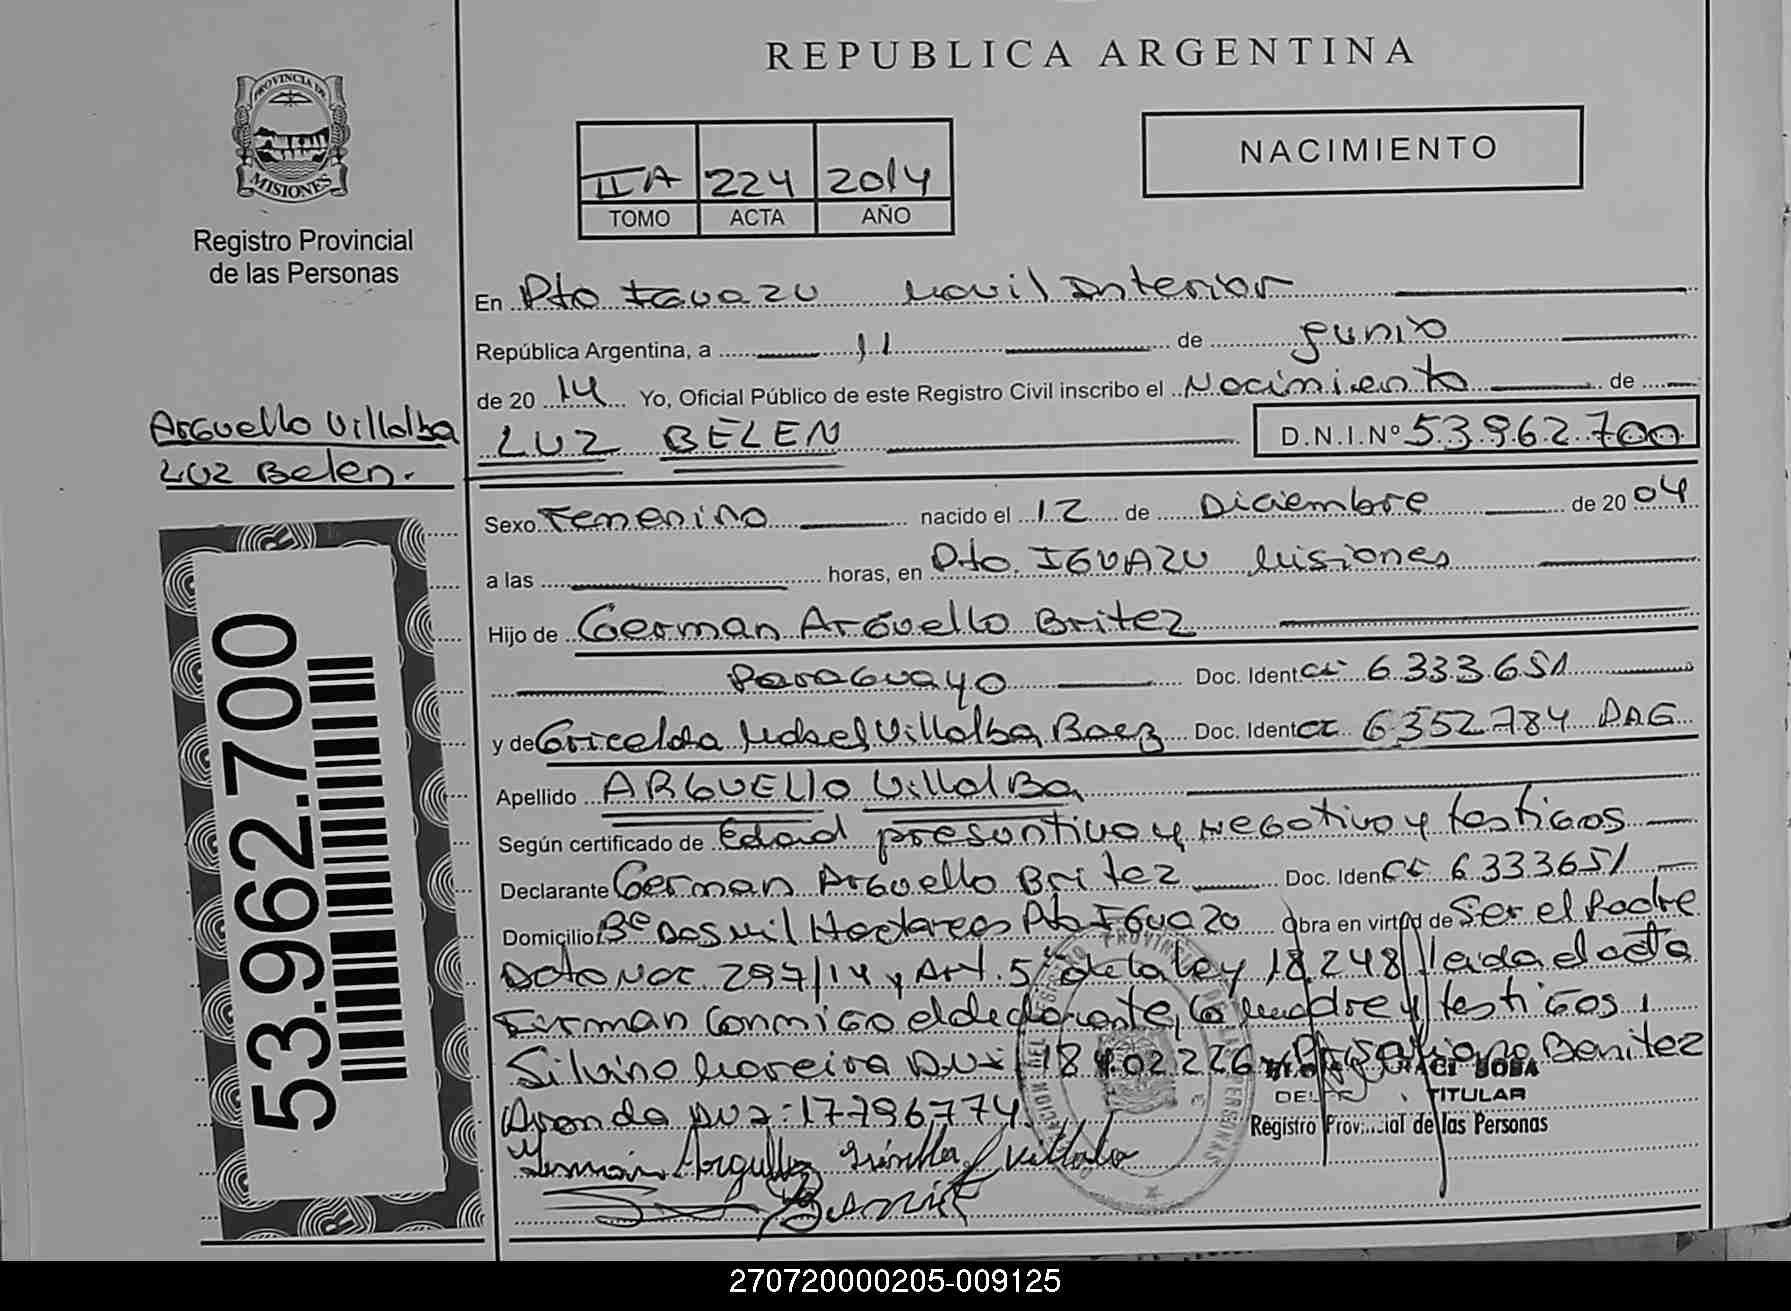 REPUBLICA ARGENTINA
PROVINCIA DE
MISIONES
Registro Provincial
de las Personas
IIA 224 2014
TOMO ACTA AÑO
NACIMIENTO
En Pto Iguazu Movil Interior
República Argentina, a 11 de Junio
de 2014 Yo, Oficial Público de este Registro Civil inscribo el Nacimiento de
Arguello Villalba
Luz Belen.
LUZ BELEN D.N.I.Nº 53.962.700
Sexo Femenino nacido el 12 de Diciembre de 2004
a las horas, en Pto. IGUAZU Misiones
Hijo de German Arguello Britez
Paraguayo Doc. Ident CI 6.333.651
y de Gricelda Villalba Baez Doc. Ident CI 6352.784 PAG
Apellido ARGUELLO VillalBa
Según certificado de Edad presuntiva y Negativo y testigos
Declarante German Arguello Britez Doc. Iden CI 6.333651
Domicilio Bº Dos mil Hectareas Pto Iguazu Obra en virtud de Ser el Padre
Dcto Nac 297/14 y Art. 5º de la ley 18.248 leida el acta
Firman Conmigo el declarante, la Madre y testigos
Silvino Moreira DNI 18402226 Benitez
DNI: 17796774
TITULAR
Registro Provincial de las Personas
53.962.700
270720000205-009125